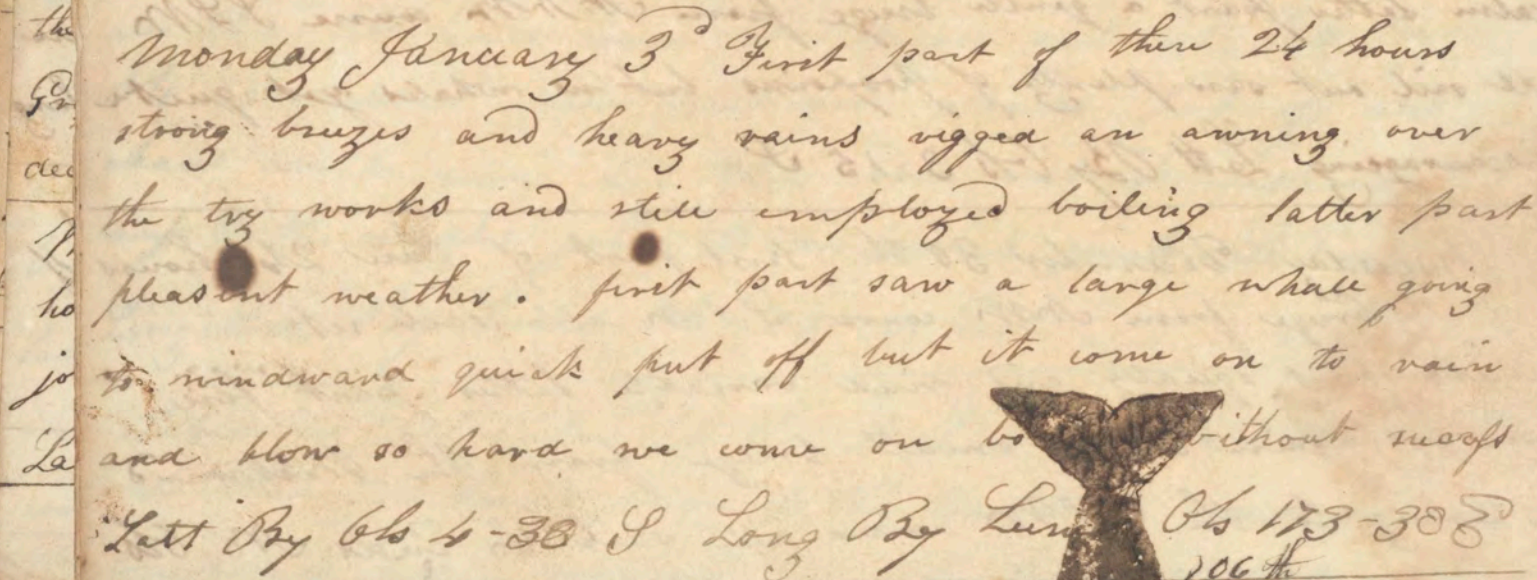 the
Monday January 3d First part of these 24 hours
Gr
strong breezes and heavy rains rigged an awning over
dec
the try works and still employed boiling latter part
pleasent weather. first part saw a large whale going
ho
to windward quick put off but it come on to rain
jo
and blow so hard we come on bo without success
La
Latt By Obs 4-38 S Long By Lun Obs 173-38 E
106th